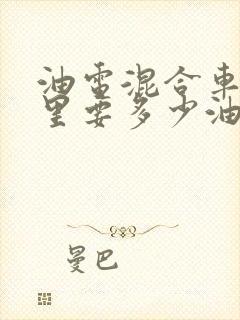 油電混合車
里要多少油
曼巴